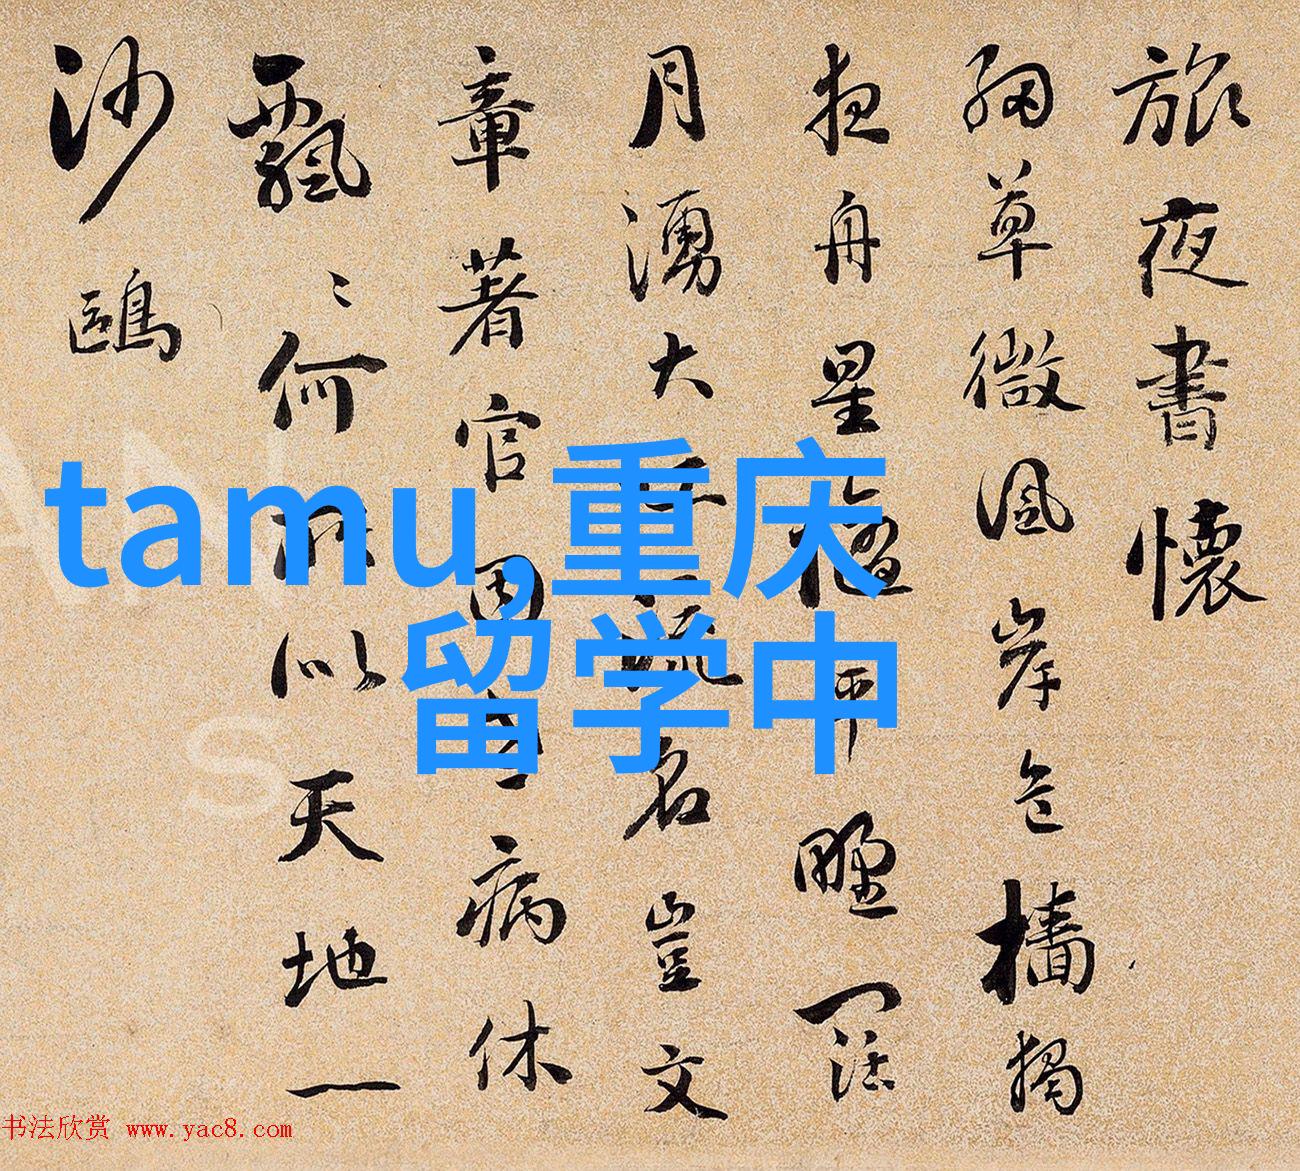 旅夜書懷
細草微風岸危檣獨
夜舟星平野闊
月湧大江流名豈文
章著官因老病休
飄〻何所似天地一
沙鷗
tamu,重庆
留学中
书法欣赏 www.yac8.com